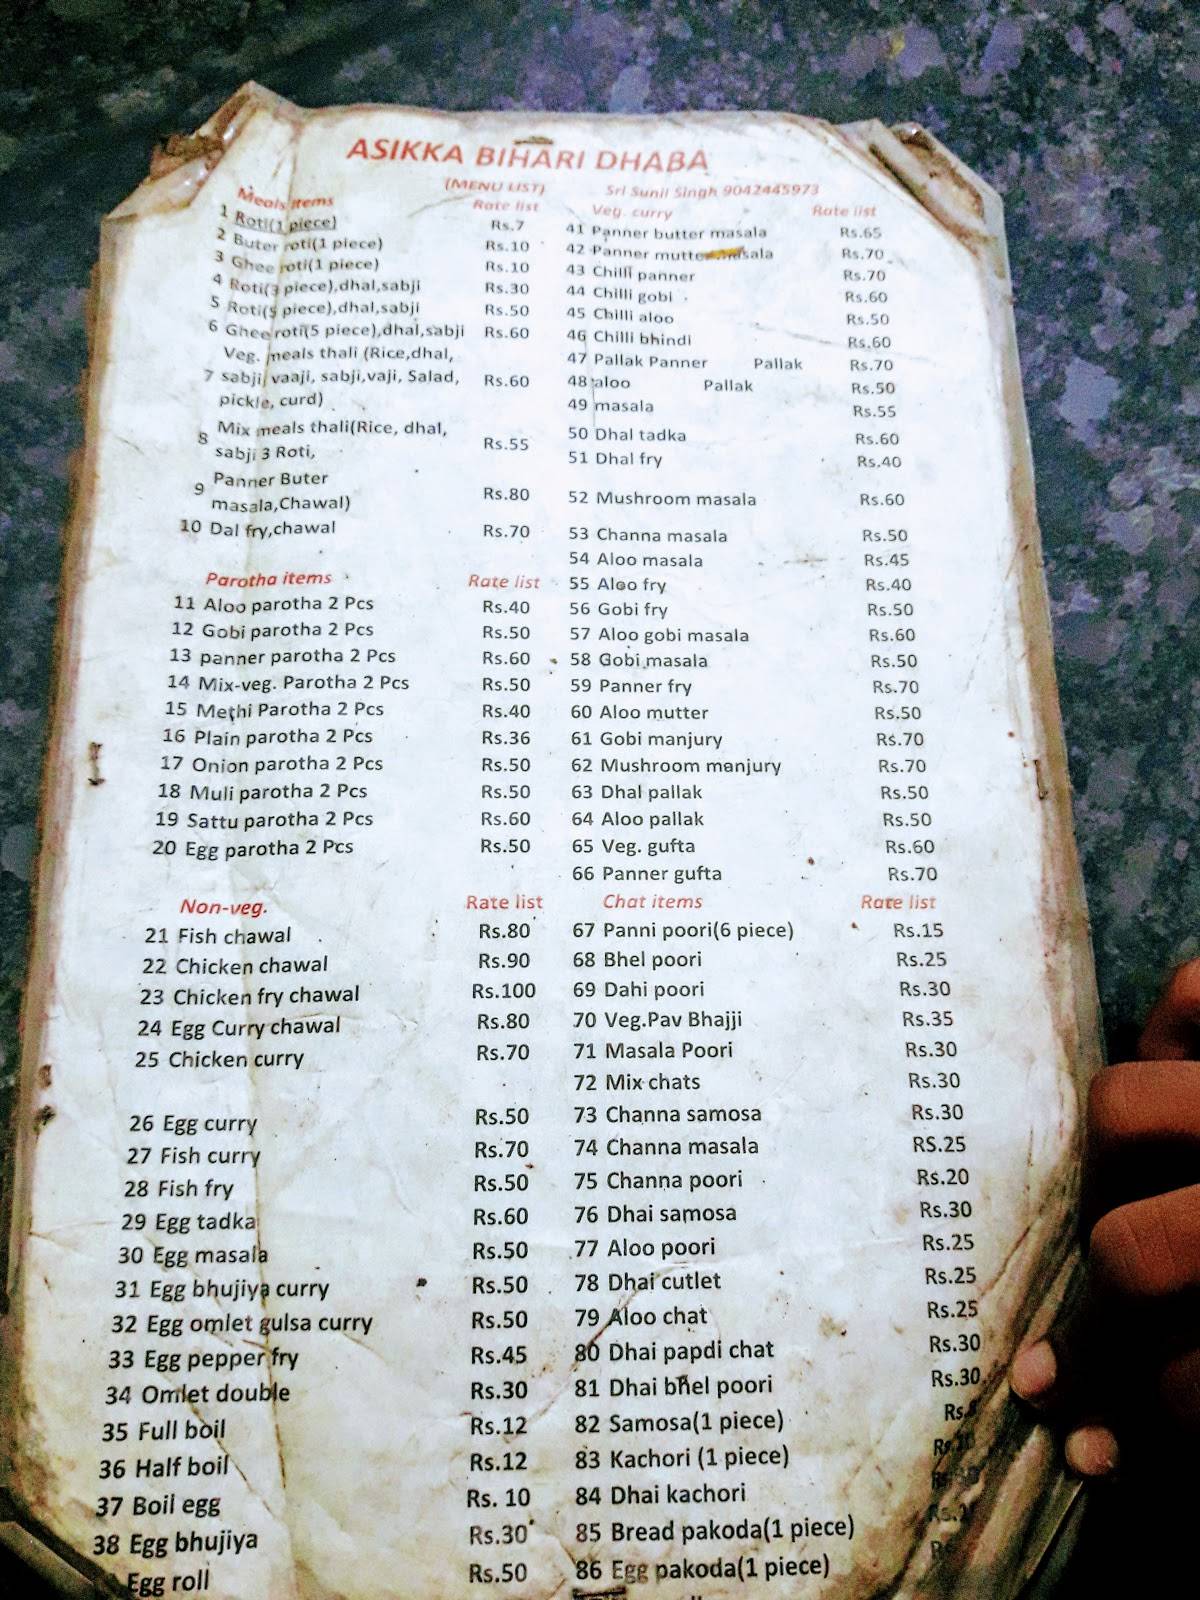 ASIKKA BIHARI DHABA
(MENU LIST) Sri Sunil Singh 9042445973
Meals items Rate list
1 Roti(1 piece) Rs.7
2 Buter roti(1 piece) Rs.10
3 Ghee roti(1 piece) Rs.10
4 Roti(3 piece),dhal,sabji Rs.30
5 Roti(5 piece),dhal,sabji Rs.50
6 Ghee roti(5 piece),dhal,sabji Rs.60
Veg. meals thali (Rice,dhal,
7 sabji vaaji, sabji,vaji, Salad, Rs.60
pickle, curd)
Mix meals thali(Rice, dhal,
8 sabji 3 Roti, Rs.55
Panner Buter
9 masala,Chawal) Rs.80
10 Dal fry,chawal Rs.70
Parotha items Rate list
11 Aloo parotha 2 Pcs Rs.40
12 Gobi parotha 2 Pcs Rs.50
13 panner parotha 2 Pcs Rs.60
14 Mix-veg. Parotha 2 Pcs Rs.50
15 Methi Parotha 2 Pcs Rs.40
16 Plain parotha 2 Pcs Rs.36
17 Onion parotha 2 Pcs Rs.50
18 Muli parotha 2 Pcs Rs.50
19 Sattu parotha 2 Pcs Rs.60
20 Egg parotha 2 Pcs Rs.50
Non-veg. Rate list
21 Fish chawal Rs.80
22 Chicken chawal Rs.90
23 Chicken fry chawal Rs.100
24 Egg Curry chawal Rs.80
25 Chicken curry Rs.70
26 Egg curry Rs.50
27 Fish curry Rs.70
28 Fish fry Rs.50
29 Egg tadka Rs.60
30 Egg masala Rs.50
31 Egg bhujiya curry Rs.50
32 Egg omlet gulsa curry Rs.50
33 Egg pepper fry Rs.45
34 Omlet double Rs.30
35 Full boil Rs.12
36 Half boil Rs.12
37 Boil egg Rs. 10
38 Egg bhujiya Rs.30
Egg roll Rs.50
Veg. curry Rate list
41 Panner butter masala Rs.65
42 Panner mutter masala Rs.70
43 Chilli panner Rs.70
44 Chilli gobi Rs.60
45 Chilli aloo Rs.50
46 Chilli bhindi Rs.60
47 Pallak Panner Pallak Rs.70
48 aloo Pallak Rs.50
49 masala Rs.55
50 Dhal tadka Rs.60
51 Dhal fry Rs.40
52 Mushroom masala Rs.60
53 Channa masala Rs.50
54 Aloo masala Rs.45
55 Aloo fry Rs.40
56 Gobi fry Rs.50
57 Aloo gobi masala Rs.60
58 Gobi masala Rs.50
59 Panner fry Rs.70
60 Aloo mutter Rs.50
61 Gobi manjury Rs.70
62 Mushroom manjury Rs.70
63 Dhal pallak Rs.50
64 Aloo pallak Rs.50
65 Veg. gufta Rs.60
66 Panner gufta Rs.70
Chat items Rate list
67 Panni poori(6 piece) Rs.15
68 Bhel poori Rs.25
69 Dahi poori Rs.30
70 Veg.Pav Bhajji Rs.35
71 Masala Poori Rs.30
72 Mix chats Rs.30
73 Channa samosa Rs.30
74 Channa masala RS.25
75 Channa poori Rs.20
76 Dhai samosa Rs.30
77 Aloo poori Rs.25
78 Dhai cutlet Rs.25
79 Aloo chat Rs.25
80 Dhai papdi chat Rs.30
81 Dhai bhel poori Rs.30
82 Samosa(1 piece)
83 Kachori (1 piece)
84 Dhai kachori
85 Bread pakoda(1 piece)
86 Egg pakoda(1 piece)